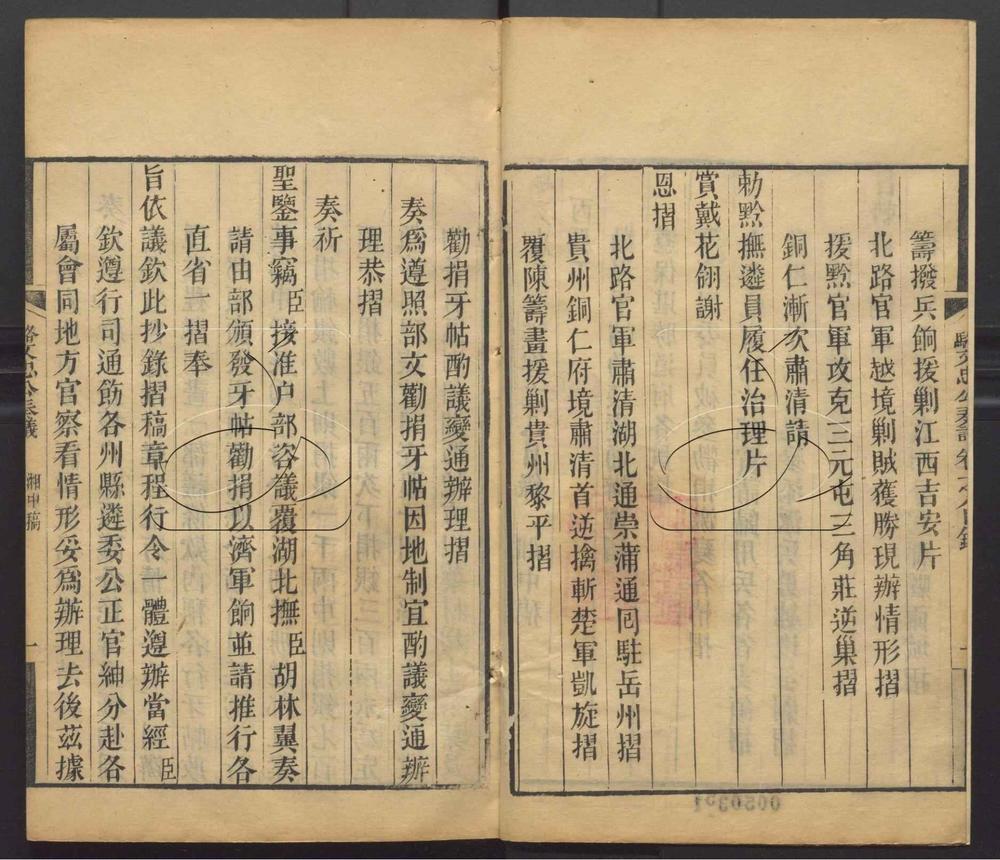 籌撥兵餉援剿江西吉安片
北路官軍越境剿賊獲勝現辦情形摺
援黔官軍攻克三元屯三角莊逆巢摺
銅仁漸次肅清請
勅黔撫遴員履任治理片
賞戴花翎謝
恩摺
北路官軍肅清湖北通崇蒲通囘駐岳州摺
貴州銅仁府境肅清首逆擒斬楚軍凱旋摺
覆陳籌畫援剿貴州黎平摺
0050301
勸捐牙帖酌議變通辦理摺
奏爲遵照部文勸捐牙帖因地制宜酌議變通辦
理恭摺
奏祈
聖鑒事竊臣接准户部咨議覆湖北撫臣胡林翼奏
請由部頒發牙帖勸捐以濟軍餉並請推行各
直省一摺奉
旨依議欽此抄錄摺稿章程行令一體遵辦當經臣
欽遵行司通飭各州縣遴委公正官紳分赴各
屬會同地方官察看情形妥爲辦理去後茲據
駱文忠公奏議
湘中稿
一